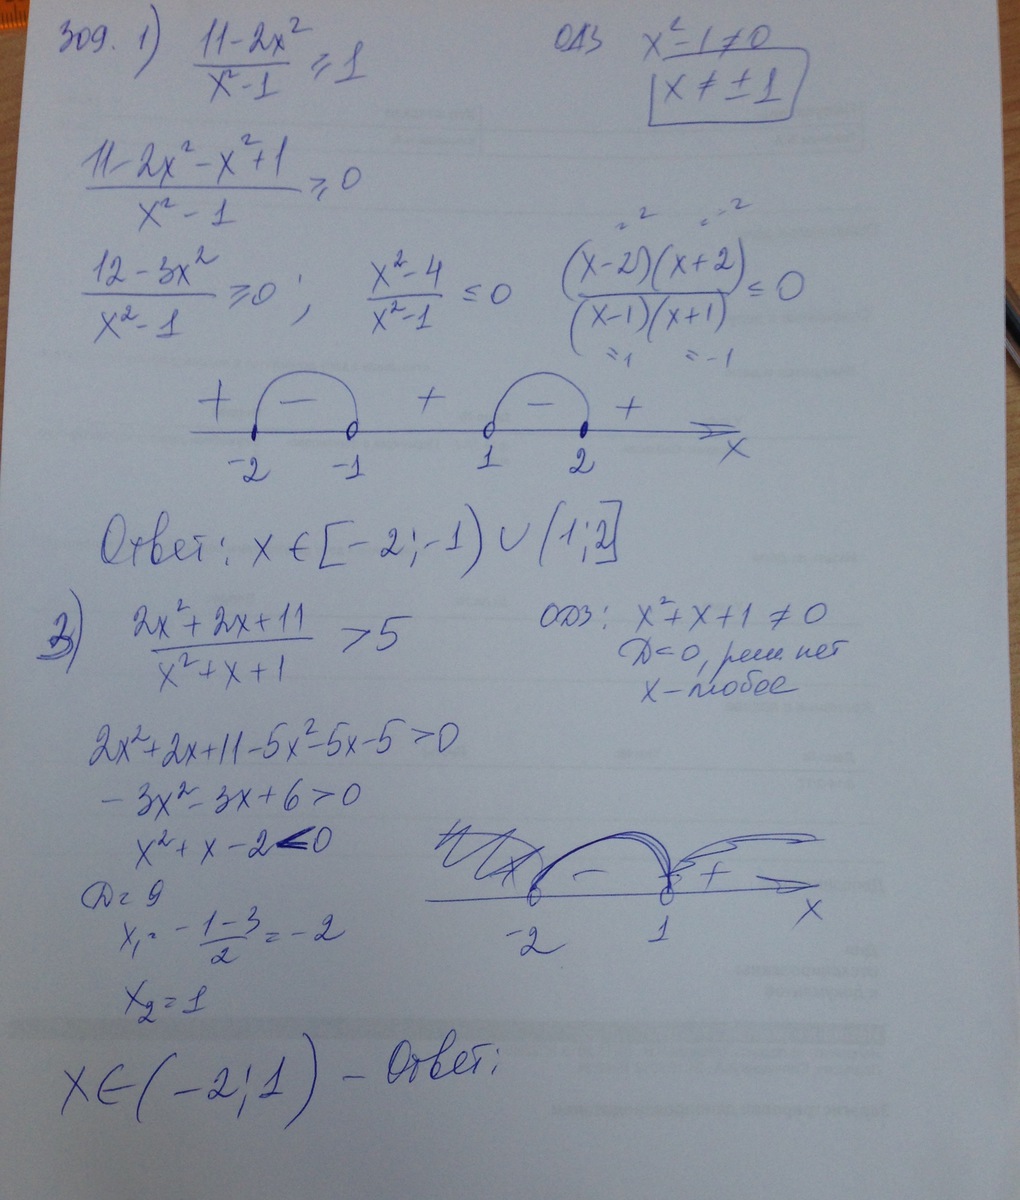 309. 1) (11-2x²)/(x²-1) ≥ 1
ОДЗ x²-1≠0
x ≠ ±1
(11-2x²-x²+1)/(x²-1) ≥ 0
(12-3x²)/(x²-1) ≥ 0; (x²-4)/(x²-1) ≤ 0 ((x-2)(x+2))/((x-1)(x+1)) ≤ 0
= 2 = -2
= 1 = -1
+ - + - +
-2 -1 1 2 x
Ответ: x ∈ [-2;-1) ∪ (1;2]
2) (2x²+2x+11)/(x²+x+1) > 5
ОДЗ: x²+x+1 ≠ 0
D<0, реш нет
x - любое
2x²+2x+11-5x²-5x-5 > 0
-3x²-3x+6 > 0
x²+x-2 < 0
D = 9
x₁ = (-1-3)/2 = -2
x₂ = 1
- +
-2 1 x
x ∈ (-2;1) - Ответ: